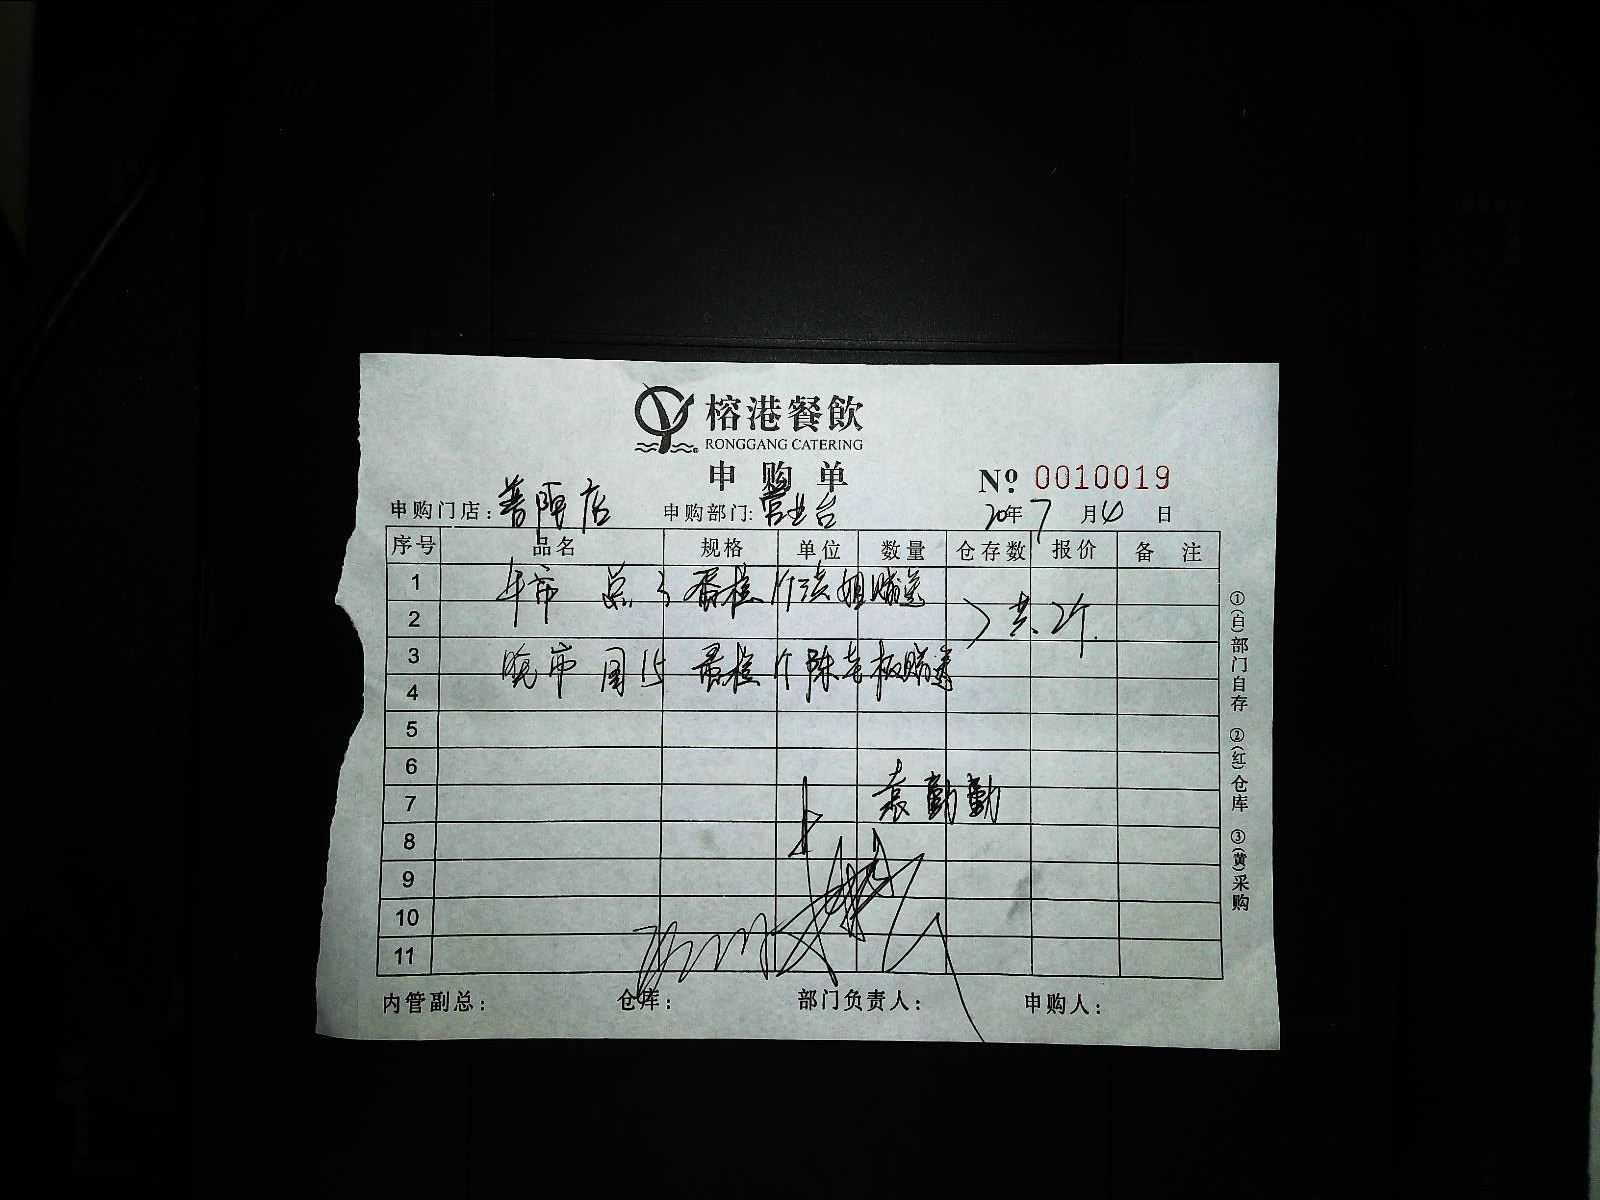 榕港餐飲
RONGGANG CATERING
申购单
№ 0010019
申购门店：普陀店 申购部门：营业台 20年7月4日
序号 品名 规格 单位 数量 仓存数 报价 备注
1 午市 总3 蛋糕 1个 洪姐赠送
2 共2个.
3 晚市 周15 蛋糕 1个 陈老板赠送
4
5
6
7 袁勤勤
8
9
10
11
内管副总： 仓库： 部门负责人： 申购人：
①(白)部门自存 ②(红)仓库 ③(黄)采购